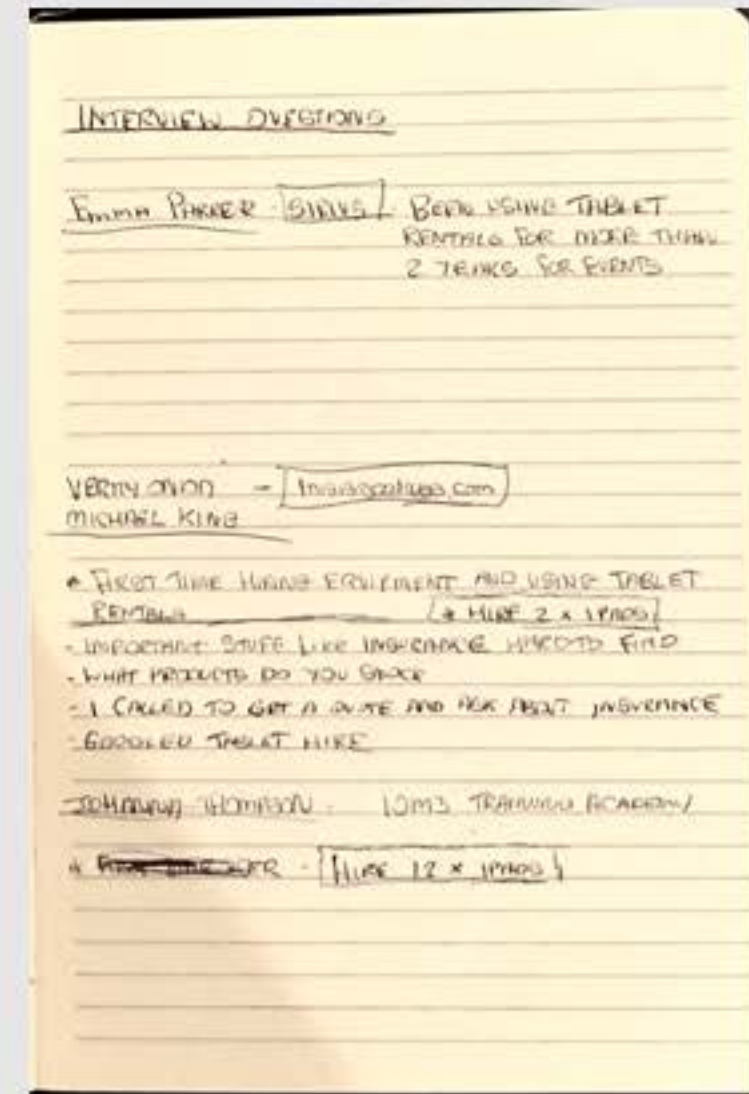 INTERVIEW QUESTIONS
EMMA PARKER - SIRIUS - BEEN USING TABLET
RENTALS FOR MORE THAN
2 YEARS FOR EVENTS
VERITY -
MICHAEL KING
* FIRST TIME HIRING EQUIPMENT AND USING TABLET
RENTALS * HIRE 2 x IPADS
- IMPORTANT STUFF LIKE INSURANCE HARD TO FIND
- WHAT PRODUCTS DO YOU STOCK
- I CALLED TO GET A QUOTE AND ASK ABOUT INSURANCE
- GOOGLED TABLET HIRE
JOHANNA THOMPSON - TRAINING ACADEMY
* - HIRE 12 x IPADS